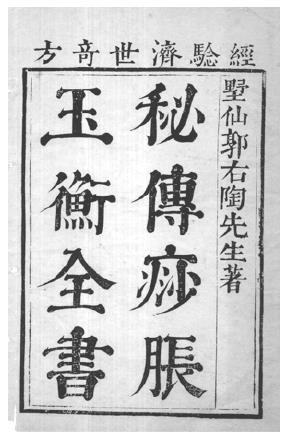 經驗濟世奇方
墅仙郭右陶先生著
秘傳痧脹
玉衡全書